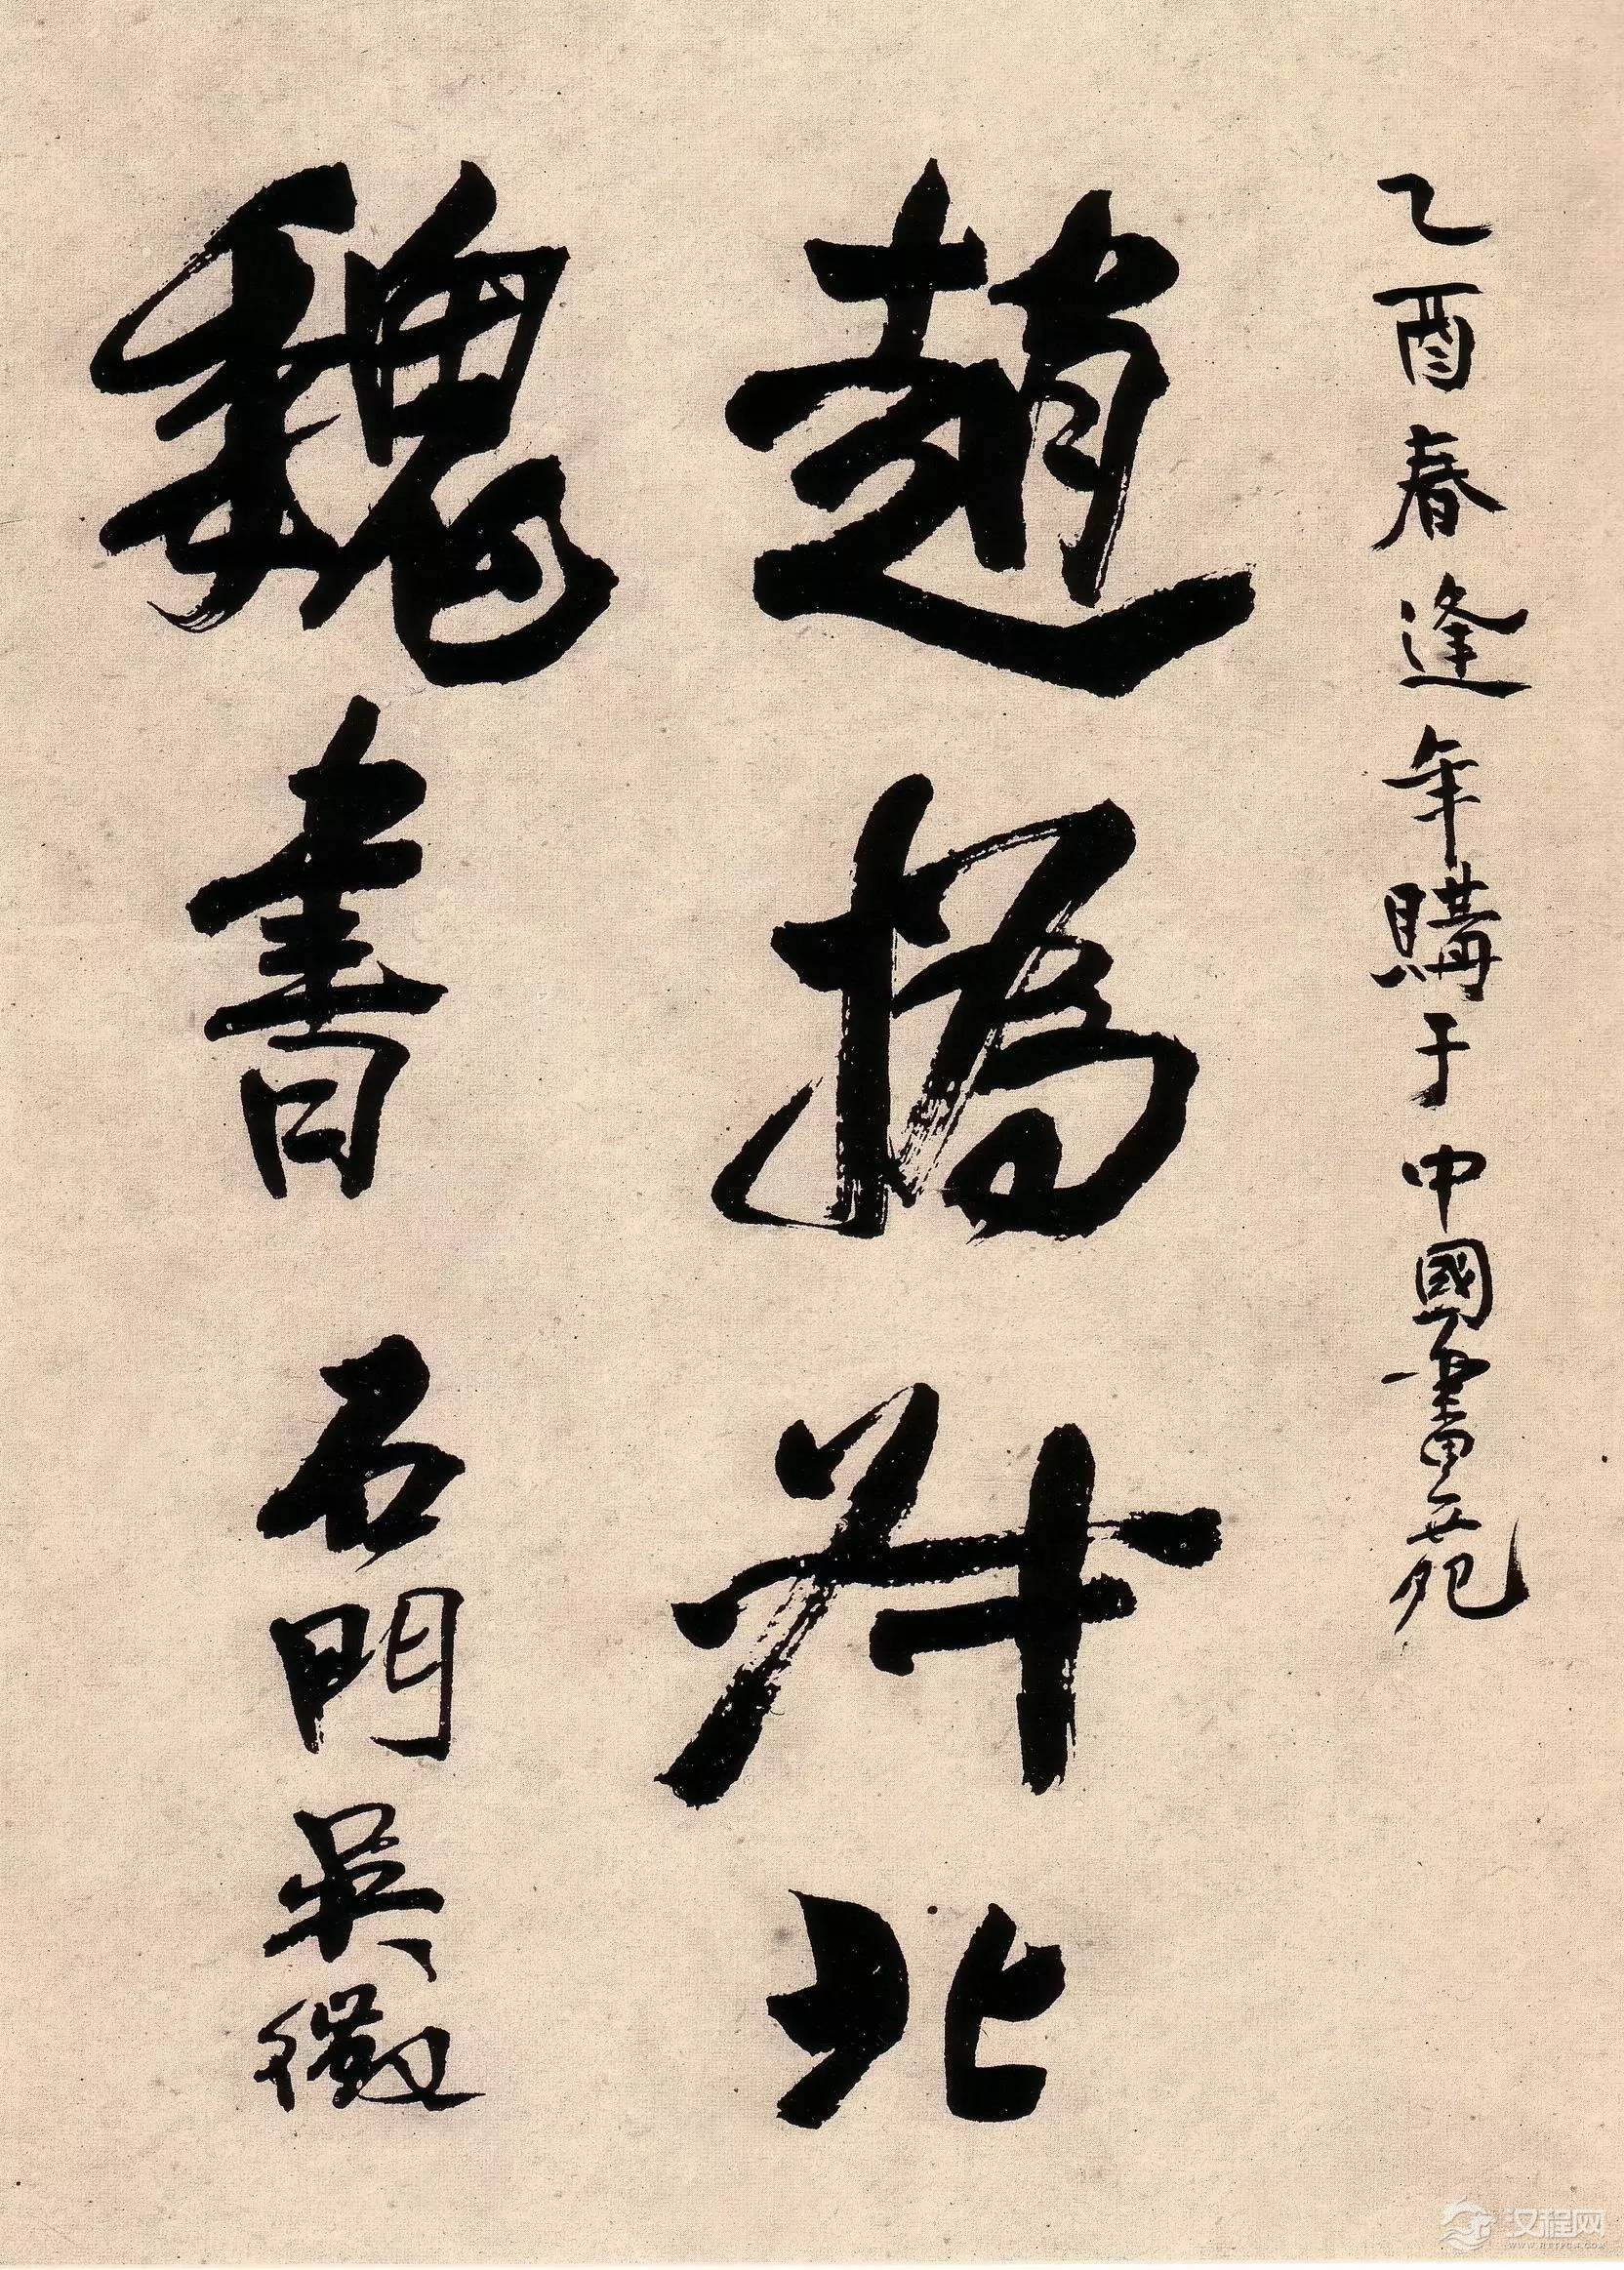 乙酉春逢年購于中國畫苑
趙撝叔北
魏書 石門吳徵
汉程网
WWW.HTTPCN.COM